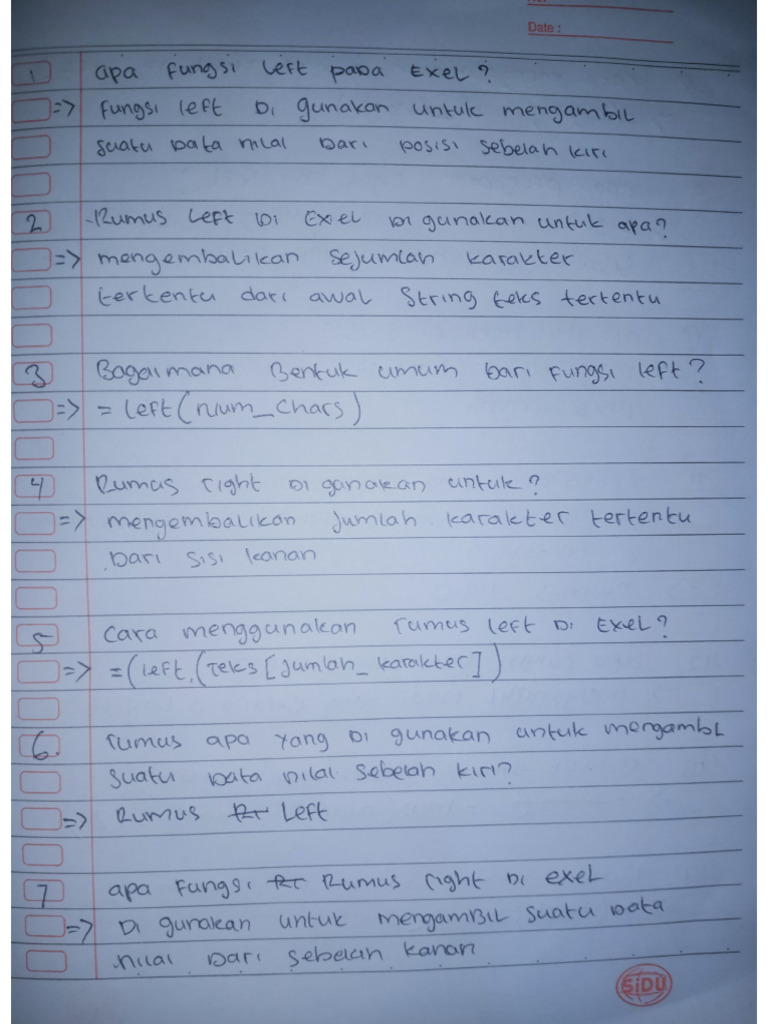 Date :
1 apa fungsi left pada Exel?
=> fungsi left di gunakan untuk mengambil
suatu data nilai dari posisi sebelah kiri
2 Rumus left di Exel di gunakan untuk apa?
=> mengembalikan sejumlah karakter
tertentu dari awal string teks tertentu
3 Bagaimana Bentuk umum dari fungsi left?
=> = left (num_chars)
4 Rumus right di gunakan untuk?
=> mengembalikan jumlah karakter tertentu
dari sisi kanan
5 cara menggunakan rumus left di Exel?
=> =(left,(Teks [jumlah_karakter])
6 rumus apa yang di gunakan untuk mengambil
suatu data nilai sebelah kiri?
=> Rumus left
7 apa fungsi Rumus right di exel
=> Di gunakan untuk mengambil suatu data
nilai dari sebelah kanan
SiDU